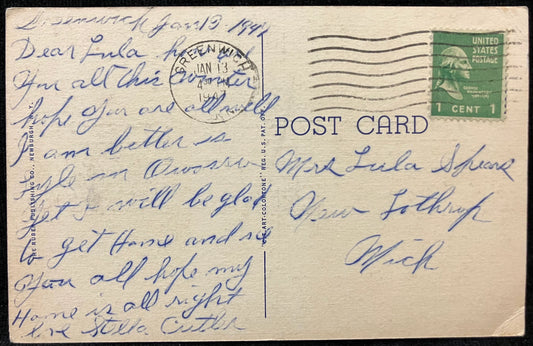 Greenwich Jan 13, 1942
Dear Lula, how are
You all this winter
hope You are all well
I am better is
Lyle in Owosso
Yet I will be glad
to get Home and see
You all hope my
Home is all right
love Stella Cutler
GREENWICH
JAN 13
4
POST CARD
Mrs Lula Spears
New Lothrop
Mich
UNITED
STATES
POSTAGE
1 CENT 1
THE RUBEN PUBLISHING CO., NEWBURGH, N.Y.
"ART-COLORTONE" REG. U.S. PAT. OFF.